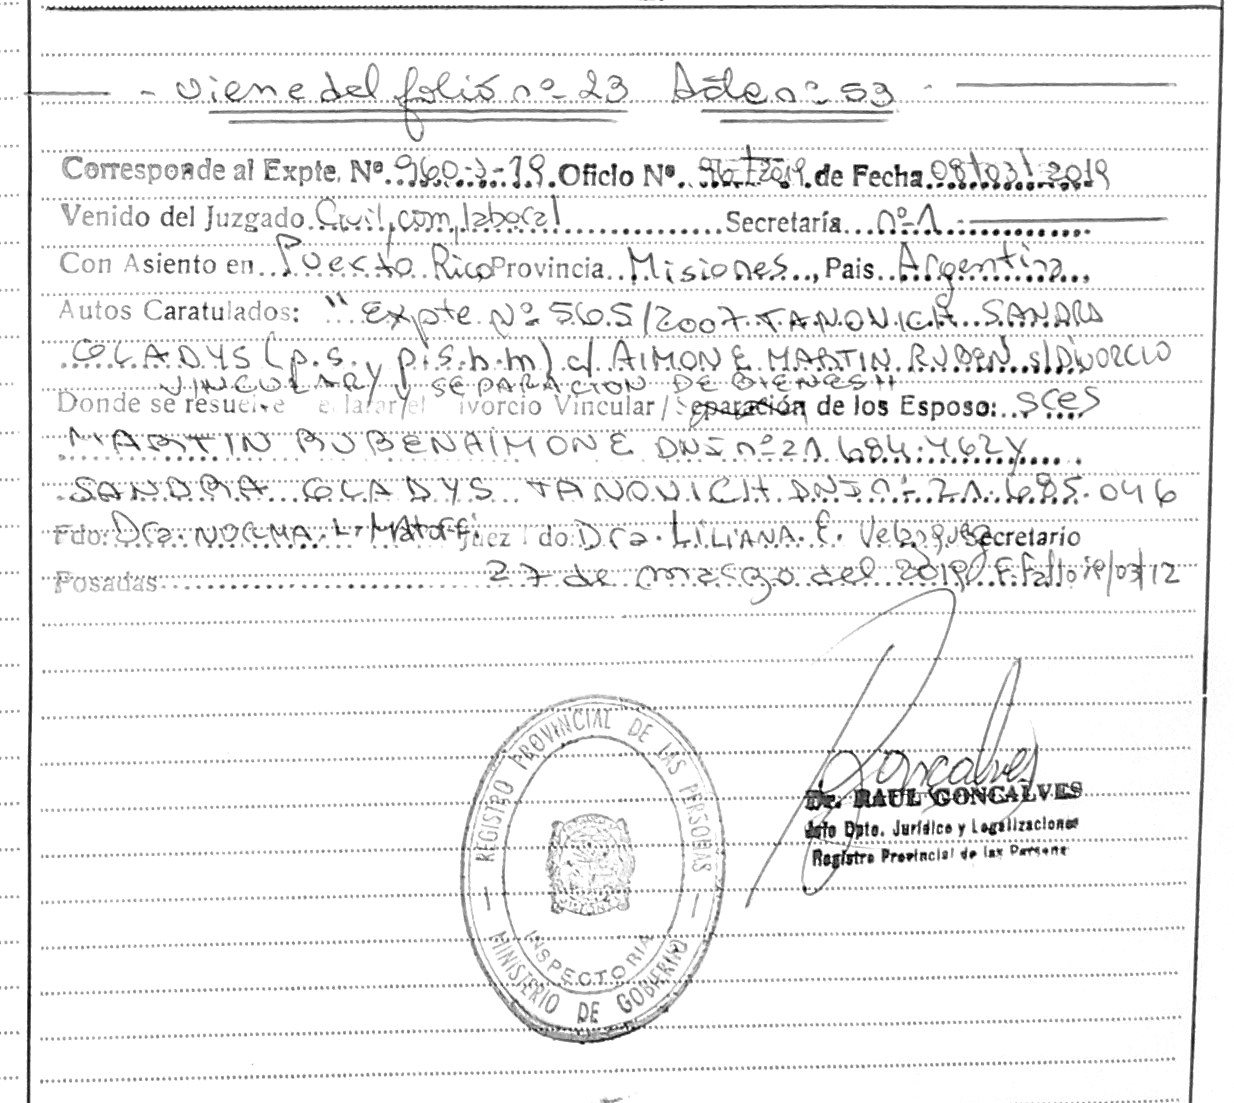 - Viene del folio nº 23 Acta nº 53 -
Corresponde al Expte. Nº 960-3-19 Oficio Nº 96/2019 de Fecha 08/03/2019
Venido del Juzgado Civil, com, laboral Secretaría nº 1
Con Asiento en Puesto Rico Provincia Misiones, Pais Argentina,
Autos Caratulados: "Expte Nº 565/2007 TANOVICH SANDRA
GLADYS (p.s. y p.s.h.m) c/ AIMONE MARTIN RUBEN s/DIVORCIO
VINCULAR y SEPARACION DE BIENES"
Donde se resuelve e larar el ivorcio Vincular / Separación de los Esposo: sces
MARTIN RUBEN AIMONE DNI nº 21.684.762 y
SANDRA GLADYS TANOVICH DNI nº 21.685.046
Fdo: Dra. NORMA L. Matoffi Juez do: Dra. LILIANA E. Velazquez Secretario
Posadas 27 de marzo del 2019 F. Fallo 19/03/12
Goncalves
Dr. RAUL GONCALVES
Jefe Dpto. Jurídico y Legalizaciones
Registro Provincial de las Persona
REGISTRO PROVINCIAL DE LAS PERSONAS
INSPECTORIA
MINISTERIO DE GOBIERNO